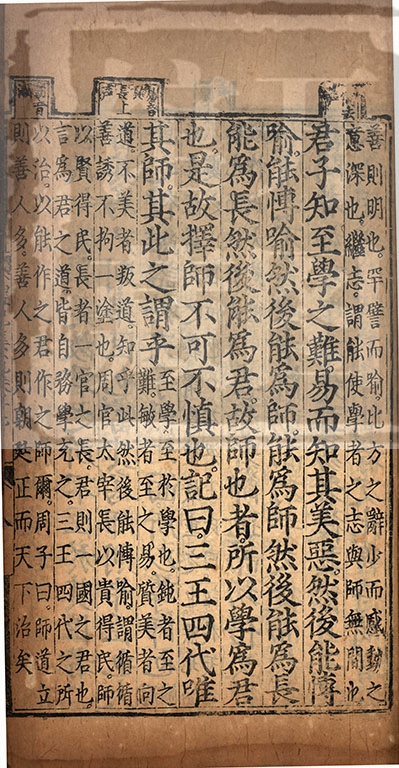 善則明也。罕譬而喻。比方之辭少而感動之
意深也。繼志。謂能使學者之志與師無間也
君子知至學之難易而知其美惡。然後能博
喻。能博喻然後能為師。能為師然後能為長
能為長然後能為君。故師也者。所以學為君
也。是故擇師不可不慎也。記曰。三王四代唯
其師。其此之謂乎
至學至於學也。鈍者至之
難。敏者至之易。質美者向
道。不美者叛道。知乎此然後能博喻。謂循循
善誘不拘一塗也。周官太宰長以貴得民。師
以賢得民。長者一官之長。君則一國之君也。
言為君之道。皆自務學充之。三王四代之所
以治。以能作之君作之師爾。周子曰。師道立
則善人多。善人多則朝廷正而天下治矣